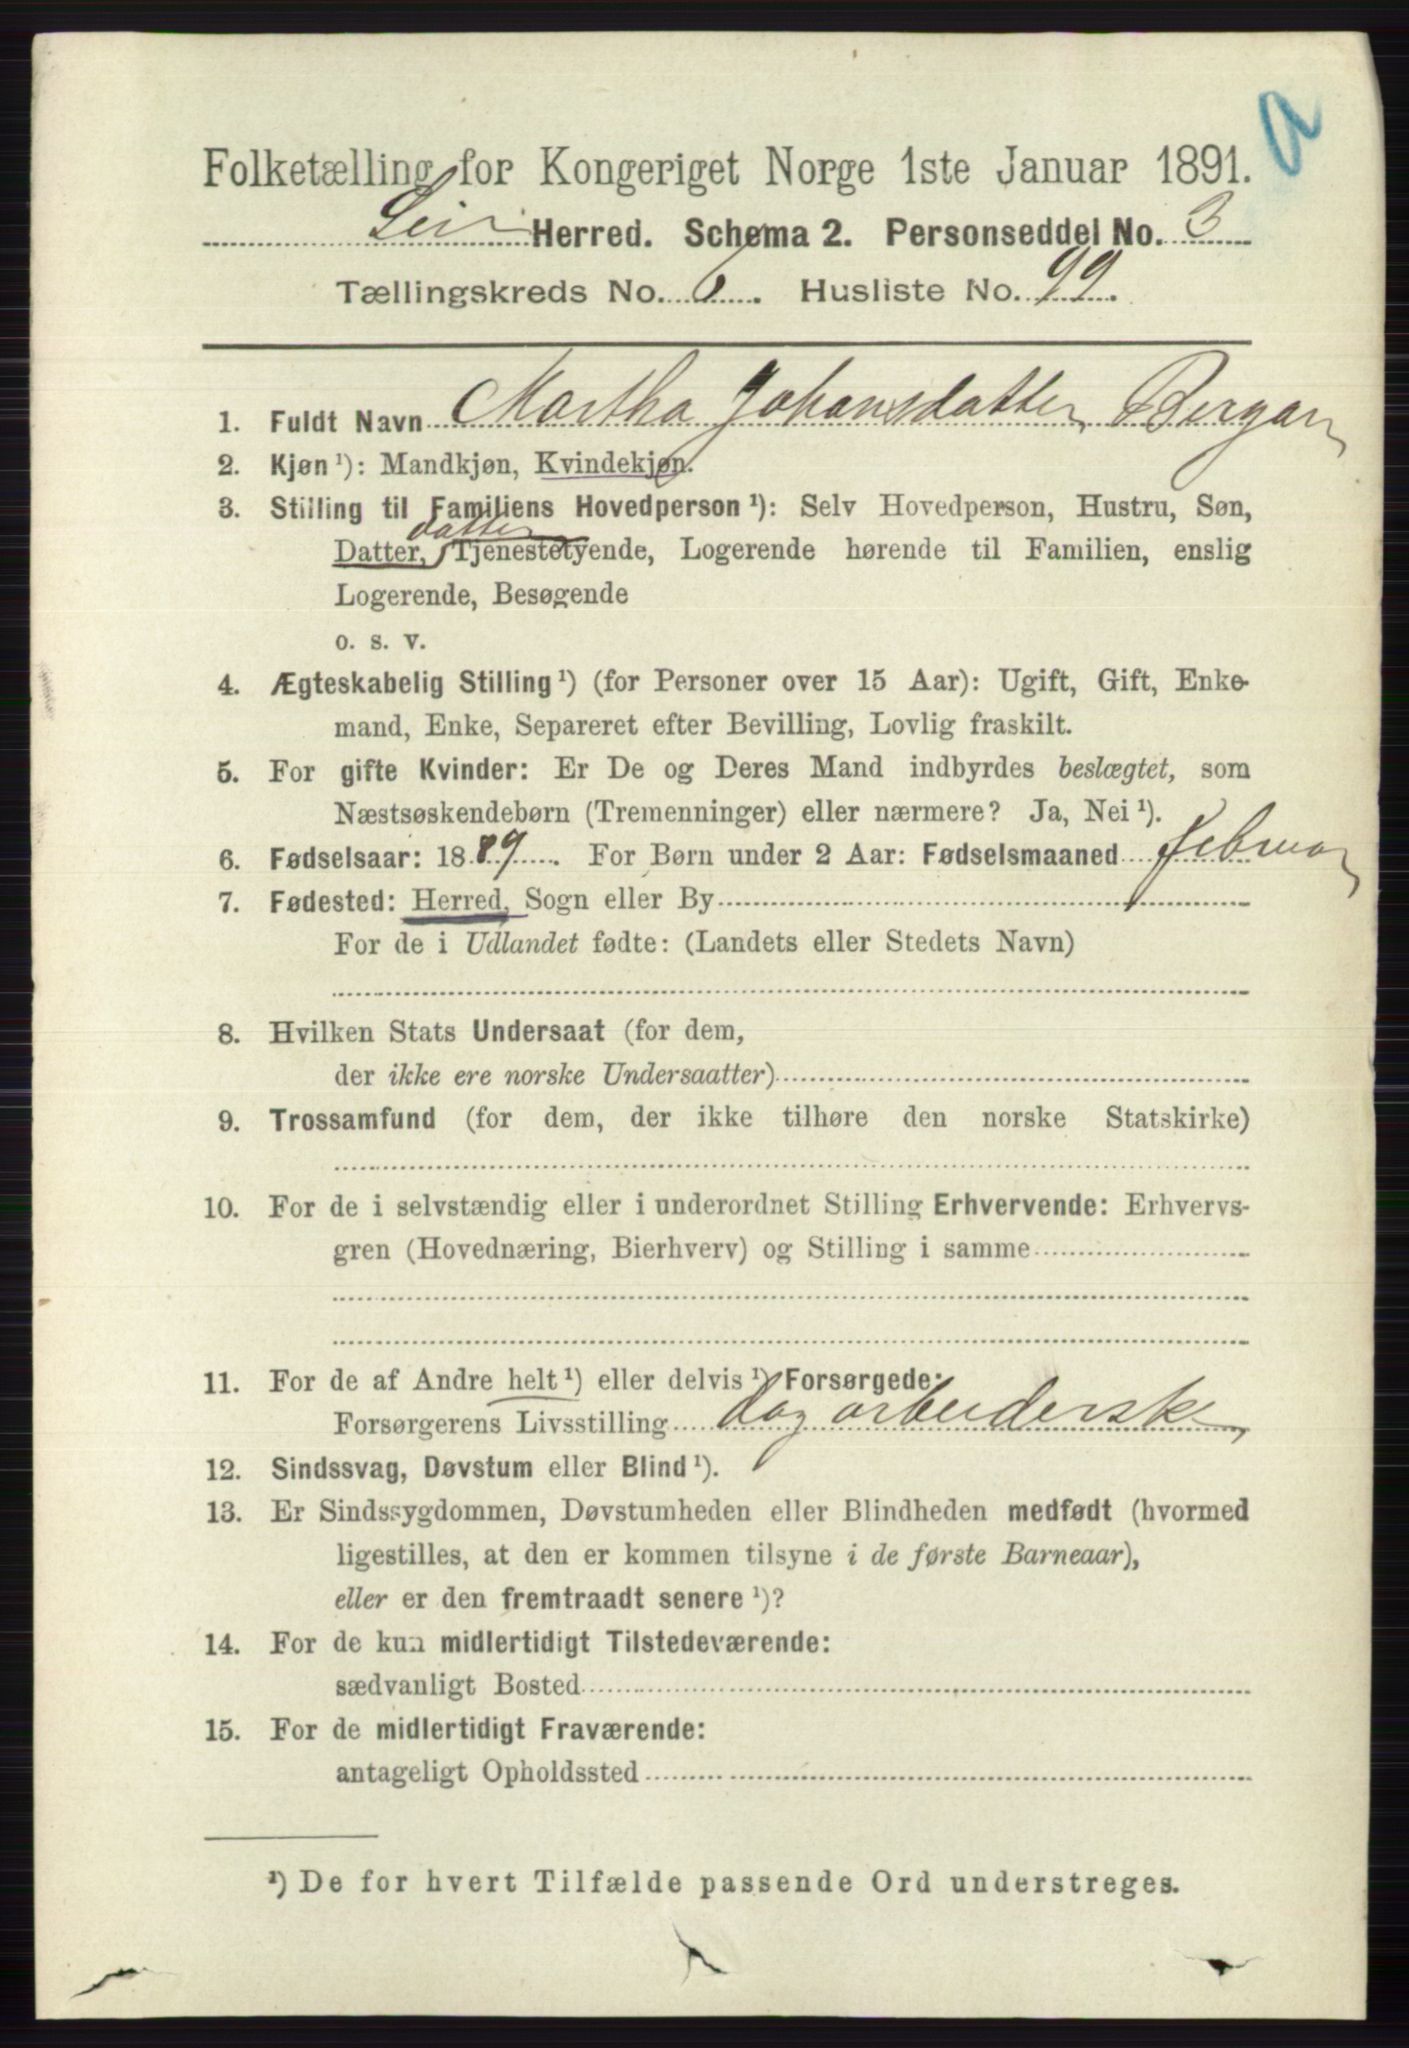 a
Folketælling for Kongeriget Norge 1ste Januar 1891.
Lier Herred. Schema 2. Personseddel No. 3
Tællingskreds No. 6. Husliste No. 99.
1. Fuldt Navn Martha Johansdatter Bergan
2. Kjøn ¹): Mandkjøn, Kvindekjøn.
3. Stilling til Familiens Hovedperson ¹): Selv Hovedperson, Hustru, Søn,
datter
Datter, Tjenestetyende, Logerende hørende til Familien, enslig
Logerende, Besøgende
o. s. v.
4. Ægteskabelig Stilling ¹) (for Personer over 15 Aar): Ugift, Gift, Enke-
mand, Enke, Separeret efter Bevilling, Lovlig fraskilt.
5. For gifte Kvinder: Er De og Deres Mand indbyrdes beslægtet, som
Næstsøskendebørn (Tremenninger) eller nærmere? Ja, Nei ¹).
6. Fødselsaar: 1889. For Børn under 2 Aar: Fødselsmaaned Februar
7. Fødested: Herred, Sogn eller By
For de i Udlandet fødte: (Landets eller Stedets Navn)
8. Hvilken Stats Undersaat (for dem,
der ikke ere norske Undersaatter)
9. Trossamfund (for dem, der ikke tilhøre den norske Statskirke)
10. For de i selvstændig eller i underordnet Stilling Erhvervende: Erhvervs-
gren (Hovednæring, Bierhverv) og Stilling i samme
11. For de af Andre helt ¹) eller delvis ¹) Forsørgede:
Forsørgerens Livsstilling dagarbeiderske
12. Sindssvag, Døvstum eller Blind ¹).
13. Er Sindssygdommen, Døvstumheden eller Blindheden medfødt (hvormed
ligestilles, at den er kommen tilsyne i de første Barneaar),
eller er den fremtraadt senere ¹)?
14. For de kun midlertidigt Tilstedeværende:
sædvanligt Bosted
15. For de midlertidigt Fraværende:
antageligt Opholdssted
¹) De for hvert Tilfælde passende Ord understreges.